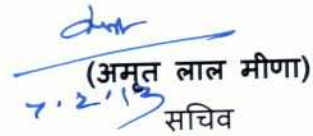 (अमृत लाल मीणा)
7.2.13
सचिव